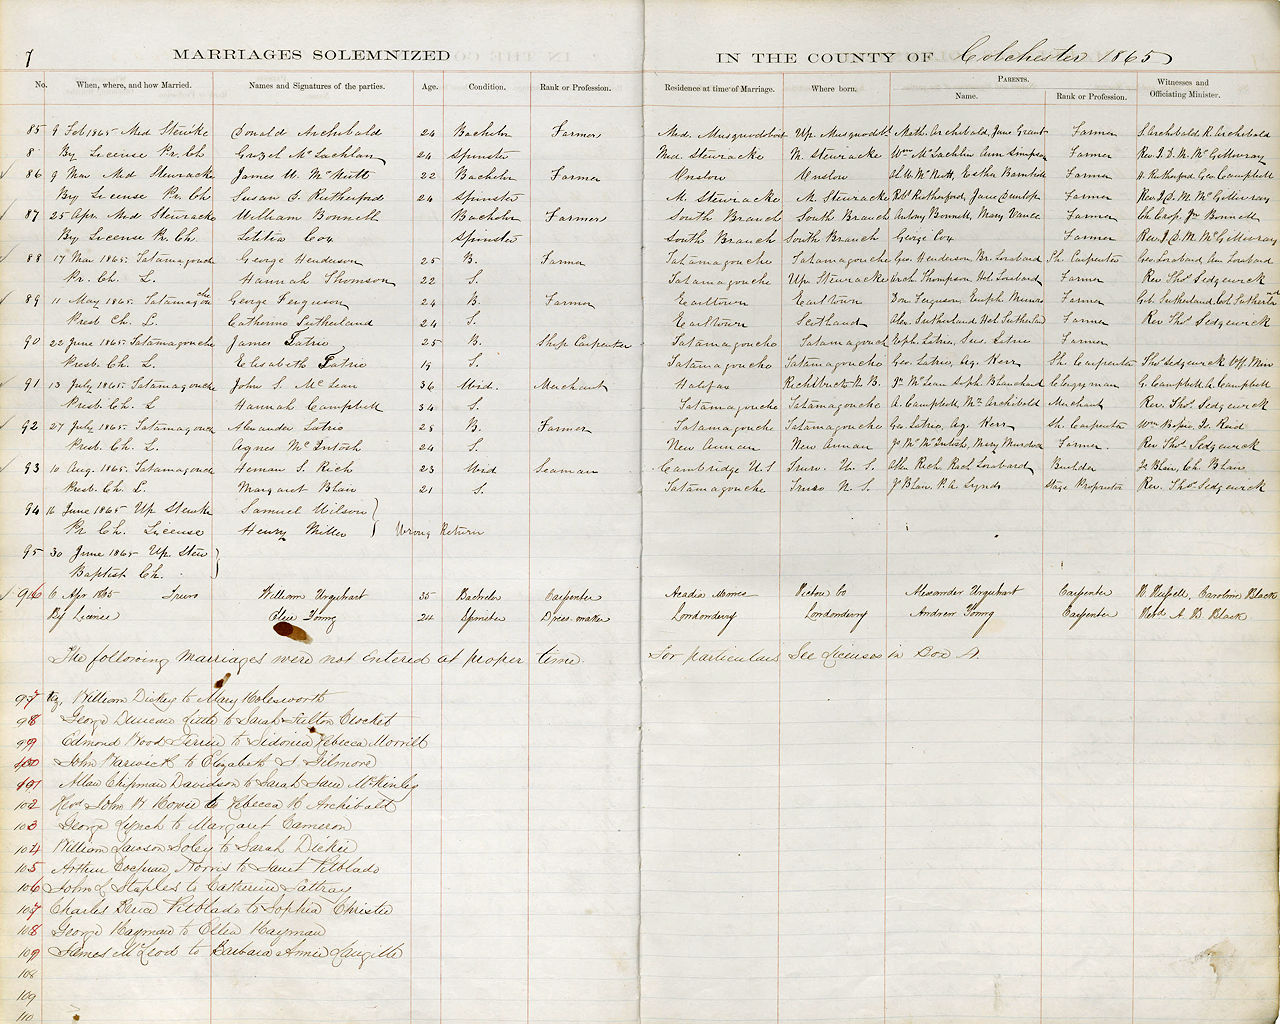 7 MARRIAGES SOLEMNIZED IN THE COUNTY OF Colchester 1865
No. When, where, and how Married. Names and Signatures of the parties. Age. Condition. Rank or Profession. Residence at time of Marriage. Where born. PARENTS. Name. Rank or Profession. Witnesses and Officiating Minister.
85 9 Feb 1865 Mid Stewiacke Donald Archibald 24 Bachelor Farmer Mid. Musquodoboit Up. Musquodobt Math. Archibald, Jane Grant Farmer S. Archibald R. Archibald
8 By License Pr. Ch Grizel McLachlan 24 Spinster Mid. Stewiacke M. Stewiacke Wm McLachlin Ann Simpson Farmer Rev J. D. M. McGillivray
86 9 Mar Mid Stewiacke James W. McNutt 22 Bachelor Farmer Onslow Onslow McNutt, Esther Barnhill Farmer H. Rutherford Geo Campbell
By License Pr. Ch Susan S. Rutherford 24 Spinster M. Stewiacke M. Stewiacke Robt Rutherford, Jane Dunlop Farmer Rev J. D. M. McGillivray
87 25 Apr. Mid Stewiacke William Bonnell Bachelor Farmer South Branch South Branch Antony Bonnell, Mary Vance Farmer Ch Crop. Jn Bonnell
By License Pr. Ch. Letitia Cox Spinster South Branch South Branch George Cox Farmer Rev J. D. M. McGillivray
88 17 Mar 1865 Tatamagouche George Henderson 25 B. Farmer Tatamagouche Tatamagouche Geo. Henderson, Lombard Sh. Carpenter Geo. Lombard, Ann Lombard
Pr. Ch. L. Hannah Thomson 22 S. Tatamagouche Up. Stewiacke Arch. Thompson, Lombard Farmer Rev Thos. Sedgewick
89 11 May 1865. Tatamagouche George Ferguson 24 B. Farmer Earltown Earltown Don. Ferguson, Euph. Munro Farmer Geb. Sutherland, Sutherland
Presb Ch. L. Catherine Sutherland 24 S. Earltown Scotland Alex. Sutherland, Hel. Sutherland Farmer Rev Thos. Sedgewick
90 22 June 1865 Tatamagouche James Tatrio 25 B. Ship Carpenter Tatamagouche Tatamagouch Eph. Latrio, Sus. Latrio Farmer
Presb. Ch. L. Elisabeth Tatrio 19 S. Tatamagouche Tatamagouche Geo. Latrio, Ag. Kerr Sh. Carpenter Thos Sedgewick Off. Min
91 13 July 1865. Tatamagouche John S. McLean 36 Wid. Merchant Halifax Richibucto N. B. Jn McLean Soph. Blanchard Clergyman G. Campbell A. Campbell
Presb. Ch. L Hannah Campbell 34 S. Tatamagouche Tatamagouche A. Campbell, Archibald Merchant Rev. Thos. Sedgewick
92 27 July 1865. Tatamagouche Alexander Latrio 28 B. Farmer Tatamagouche Tatamagouche Geo. Latrio, Ag. Kerr Sh. Carpenter Wm Reid
Presb. Ch. L. Agnes McIntosh 24 S. New Annan New Annan McIntosh, Mary Murdock Farmer Rev Thos. Sedgewick
93 10 Aug. 1865. Tatamagouche Heman S. Rich 23 Wid Seaman Cambridge U. S Truro. U. S. Rich Rach Lombard Builder Js Blair, Ch. Blair
Presb. Ch. L. Margaret Blair 21 S. Tatamagouche Truro N. S. Jn Blair, Lynds Stage Proprietor Rev. Thos. Sedgewick
94 16 June 1865 Up Stewke Samuel Wilson
Pr Ch. License Henry Miller Wrong Return
95 30 June 1865 Up. Stew
Baptist Ch.
96 6 Apr 1865 Truro William Urquhart 35 Bachelor Carpenter Acadia Mines Pictou Co Alexander Urquhart Carpenter W Russell, Caroline Black
By License Ellen Young 24 Spinster Dress-maker Londonderry Londonderry Andrew Young Carpenter Revd A B Black
The following marriages were not entered at proper time. For particulars See Licenses in Box A.
97 viz, William Dickey to Mary Holesworth
98 George Duncan Little to Sarah Fulton Crocket
99 Edmond Wood to Sidonia Rebecca Morrill
100 John Warwick to Elizabeth S Gilmore
101 Allan Chipman Davidson to Sarah Jane McKinley
102 Revd John to Rebecca Archibald
103 George Lynch to Margaret Cameron
104 William Lawson Soley to Sarah Dickie
105 Arthur Cochran Norris to Janet Pitblado
106 John L Staples to Catherine Lattray
107 Charles Bruce Pitblado to Sophia Christie
108 George Hayman to Ellen Hayman
109 James McLeod to Barbara Annie Langille
108
109
110